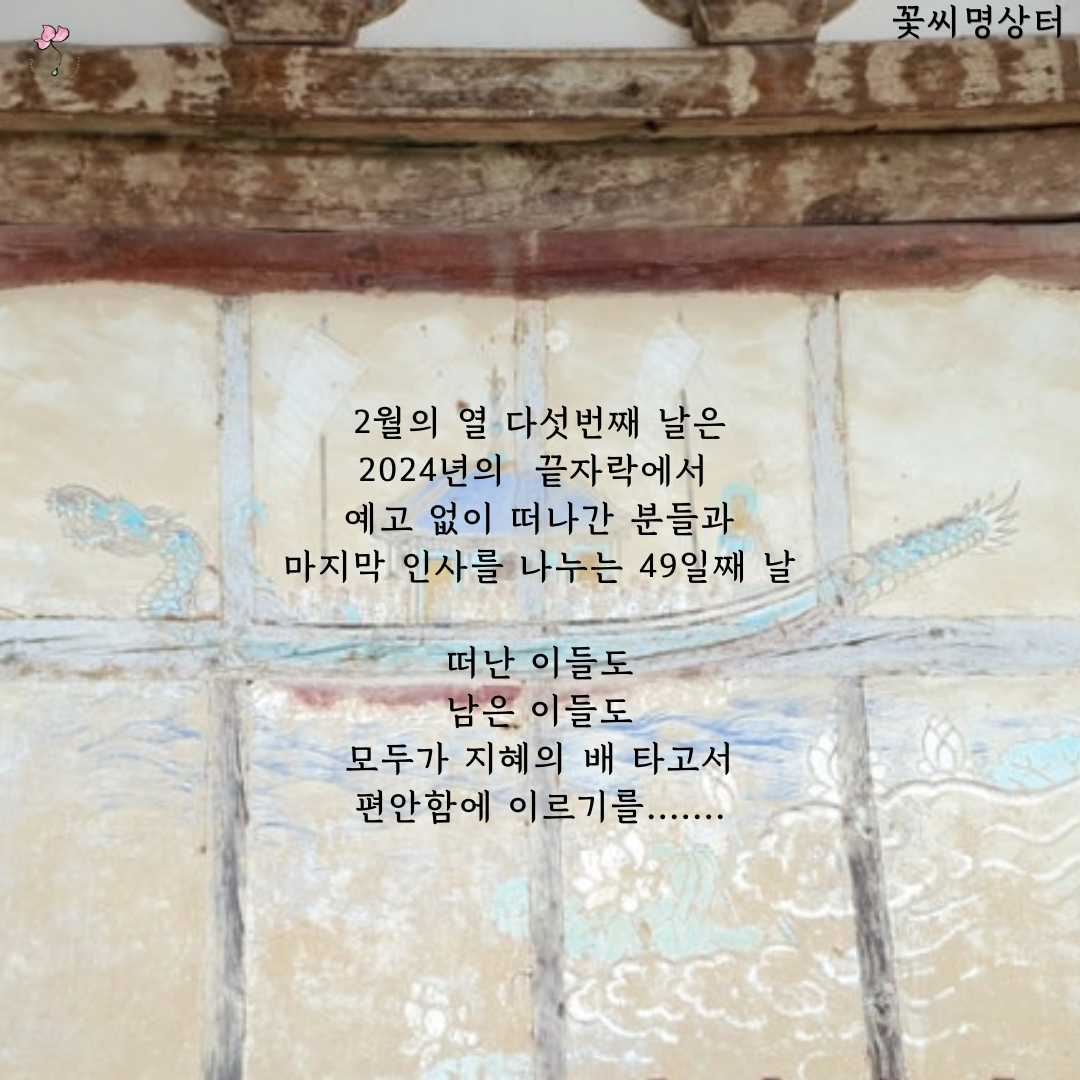 꽃씨명상터
2월의 열 다섯번째 날은
2024년의 끝자락에서
예고 없이 떠나간 분들과
마지막 인사를 나누는 49일째 날
떠난 이들도
남은 이들도
모두가 지혜의 배 타고서
편안함에 이르기를.......